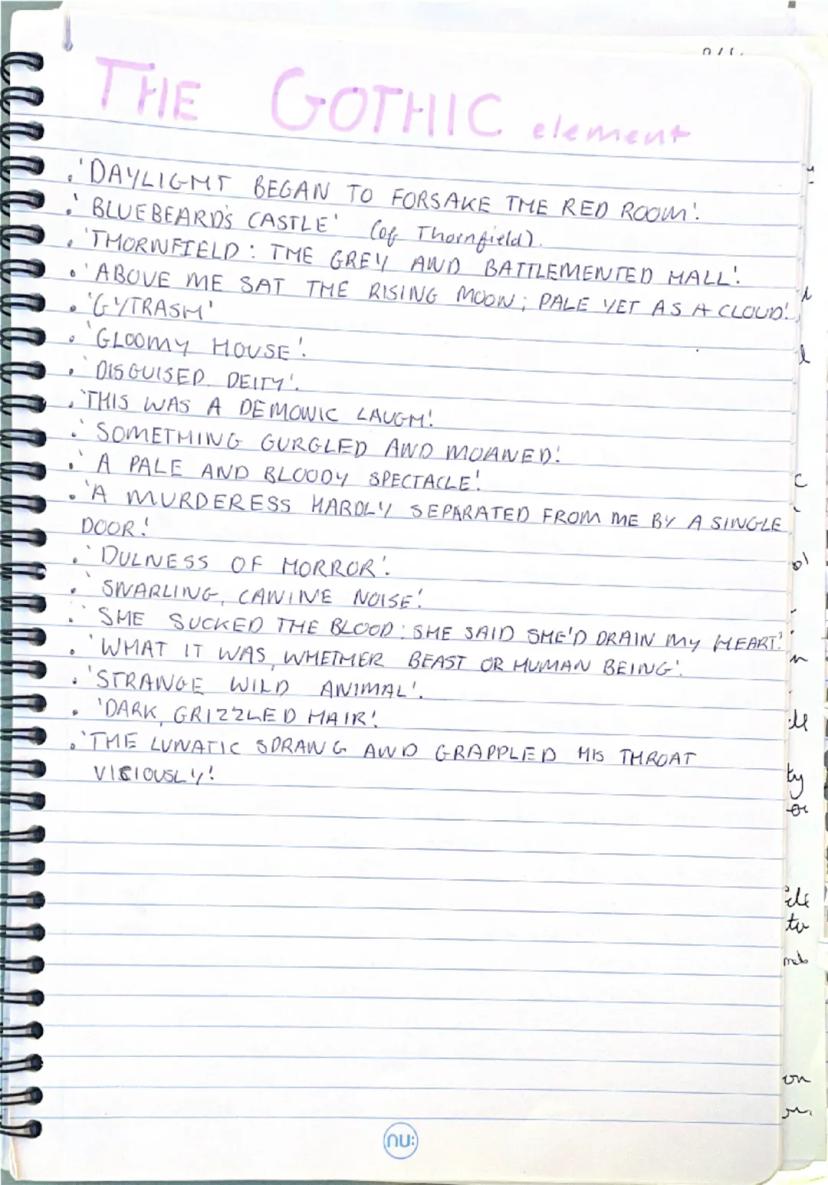 THE GOTHIC element
. 'DAYLIGHT BEGAN TO FORSAKE THE RED ROOM'.
. 'BLUEBEARD'S CASTLE' (of Thornfield).
. 'THORNFIELD: THE GREY AND BATTLEMENTED HALL'.
. 'ABOVE ME SAT THE RISING MOON; PALE YET AS A CLOUD'.
. 'GYTRASH'
. 'GLOOMY HOUSE'.
. 'DISGUISED DEITY'.
. 'THIS WAS A DEMONIC LAUGH'.
. 'SOMETHING GURGLED AND MOANED'.
. 'A PALE AND BLOODY SPECTACLE'.
. 'A MURDERESS HARDLY SEPARATED FROM ME BY A SINGLE
DOOR'.
. 'DULNESS OF HORROR'.
. 'SNARLING, CANINE NOISE'.
. 'SHE SUCKED THE BLOOD: SHE SAID SHE'D DRAIN MY HEART'.
. 'WHAT IT WAS, WHETHER BEAST OR HUMAN BEING'.
. 'STRANGE WILD ANIMAL'.
. 'DARK, GRIZZLED HAIR'.
. 'THE LUNATIC SPRANG AND GRAPPLED HIS THROAT
VICIOUSLY'.
nu: